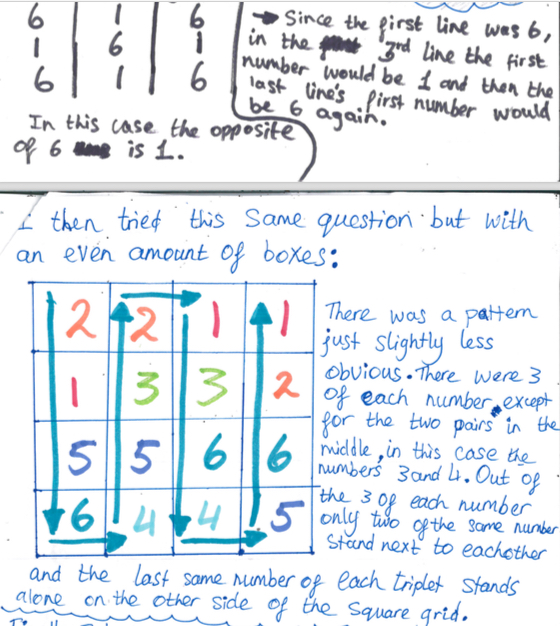 6 | 1 | 6
1 | 6 | 1
6 | 1 | 6
In this case the opposite
of 6 is 1.
→ Since the first line was 6,
in the 3rd line the first
number would be 1 and then the
last line's first number would
be 6 again.
I then tried this same question but with
an even amount of boxes:
2 2 1 1
1 3 3 2
5 5 6 6
6 4 4 5
There was a pattern
just slightly less
obvious. There were 3
of each number, except
for the two pairs in the
middle, in this case the
numbers 3 and 4. Out of
the 3 of each number
only two of the same number
stand next to eachother
and the last same number of each triplet stands
alone on the other side of the square grid.